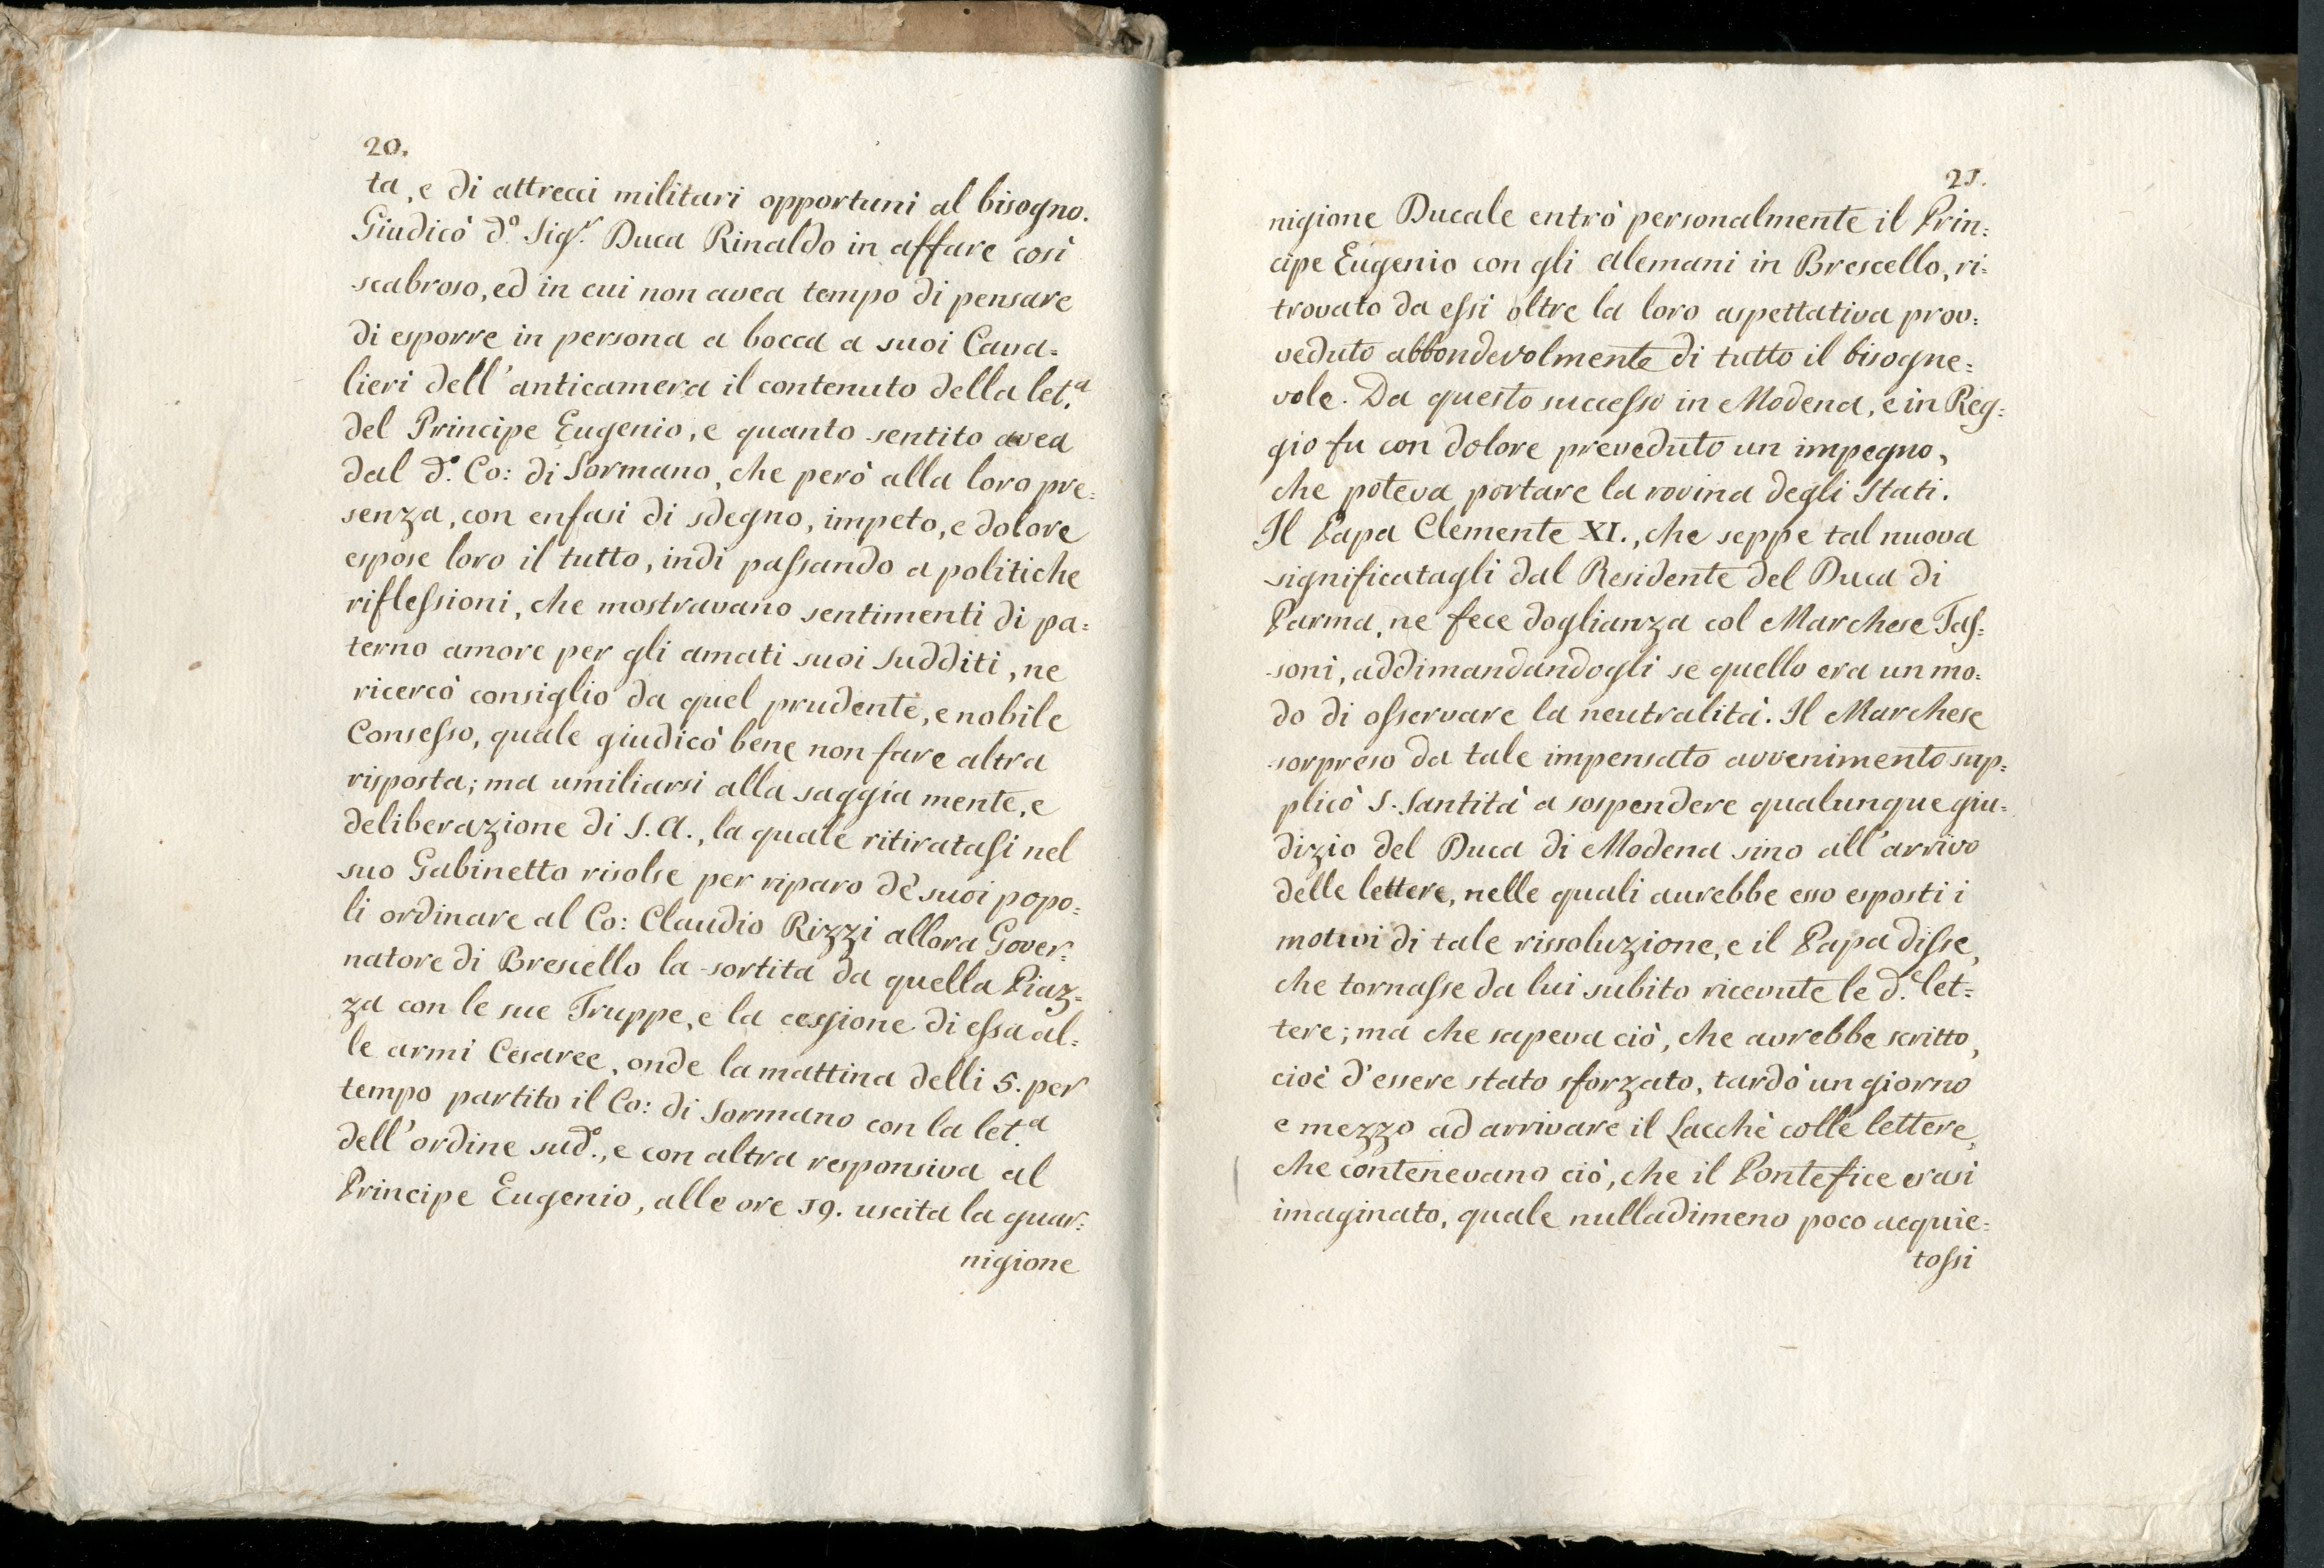 20.
ta, e di attrecci militari opportuni al bisogno.
Giudicò d.º Sig.r Duca Rinaldo in affare così
scabroso, ed in cui non avea tempo di pensare
di esporre in persona a bocca a suoi Cava=
lieri dell'anticamera il contenuto della let.a
del Principe Eugenio, e quanto sentito avea
dal d.º Co: di Sormano, che però alla loro pre=
senza, con enfasi di sdegno, impeto, e dolore
espose loro il tutto, indi passando a politiche
riflessioni, che mostravano sentimenti di pa=
terno amore per gli amati suoi Sudditi, ne
ricercò consiglio da quel prudente, e nobile
Consesso, quale giudicò bene non fare altra
risposta; ma umiliarsi alla saggia mente, e
deliberazione di S. A., la quale ritiratasi nel
suo Gabinetto risolse per riparo de' suoi popo=
li ordinare al Co: Claudio Rizzi allora Gover=
natore di Brescello la sortita da quella Piaz=
za con le sue Truppe, e la cessione di essa al=
le armi Cesaree, onde la mattina delli 5. per
tempo partito il Co: di Sormano con la let.a
dell'ordine sud.º, e con altra responsiva al
Principe Eugenio, alle ore 19. uscita la guar=
nigione
21.
nigione Ducale entrò personalmente il Prin=
cipe Eugenio con gli alemani in Brescello, ri=
trovato da essi oltre la loro aspettativa prov=
veduto abbondevolmente di tutto il bisogne=
vole. Da questo successo in Modena, e in Reg=
gio fu con dolore preveduto un impegno,
che poteva portare la rovina degli Stati.
Il Papa Clemente XI., che seppe tal nuova
significatagli dal Residente del Duca di
Parma, ne fece doglianza col Marchese Tas=
soni, addimandandogli se quello era un mo=
do di osservare la neutralità. Il Marchese
sorpreso da tale impensato avvenimento sup=
plicò S. Santità a sospendere qualunque giu=
dizio del Duca di Modena sino all'arrivo
delle lettere, nelle quali aurebbe esso esposti i
motivi di tale rissoluzione, e il Papa disse,
che tornasse da lui subito ricevute le d.e let=
tere; ma che sapeva ciò, che avrebbe scritto,
cioè d'essere stato sforzato, tardò un giorno
e mezzo ad arrivare il Lacchè colle lettere,
che contenevano ciò, che il Pontefice erasi
imaginato, quale nulladimeno poco acquie=
tossi